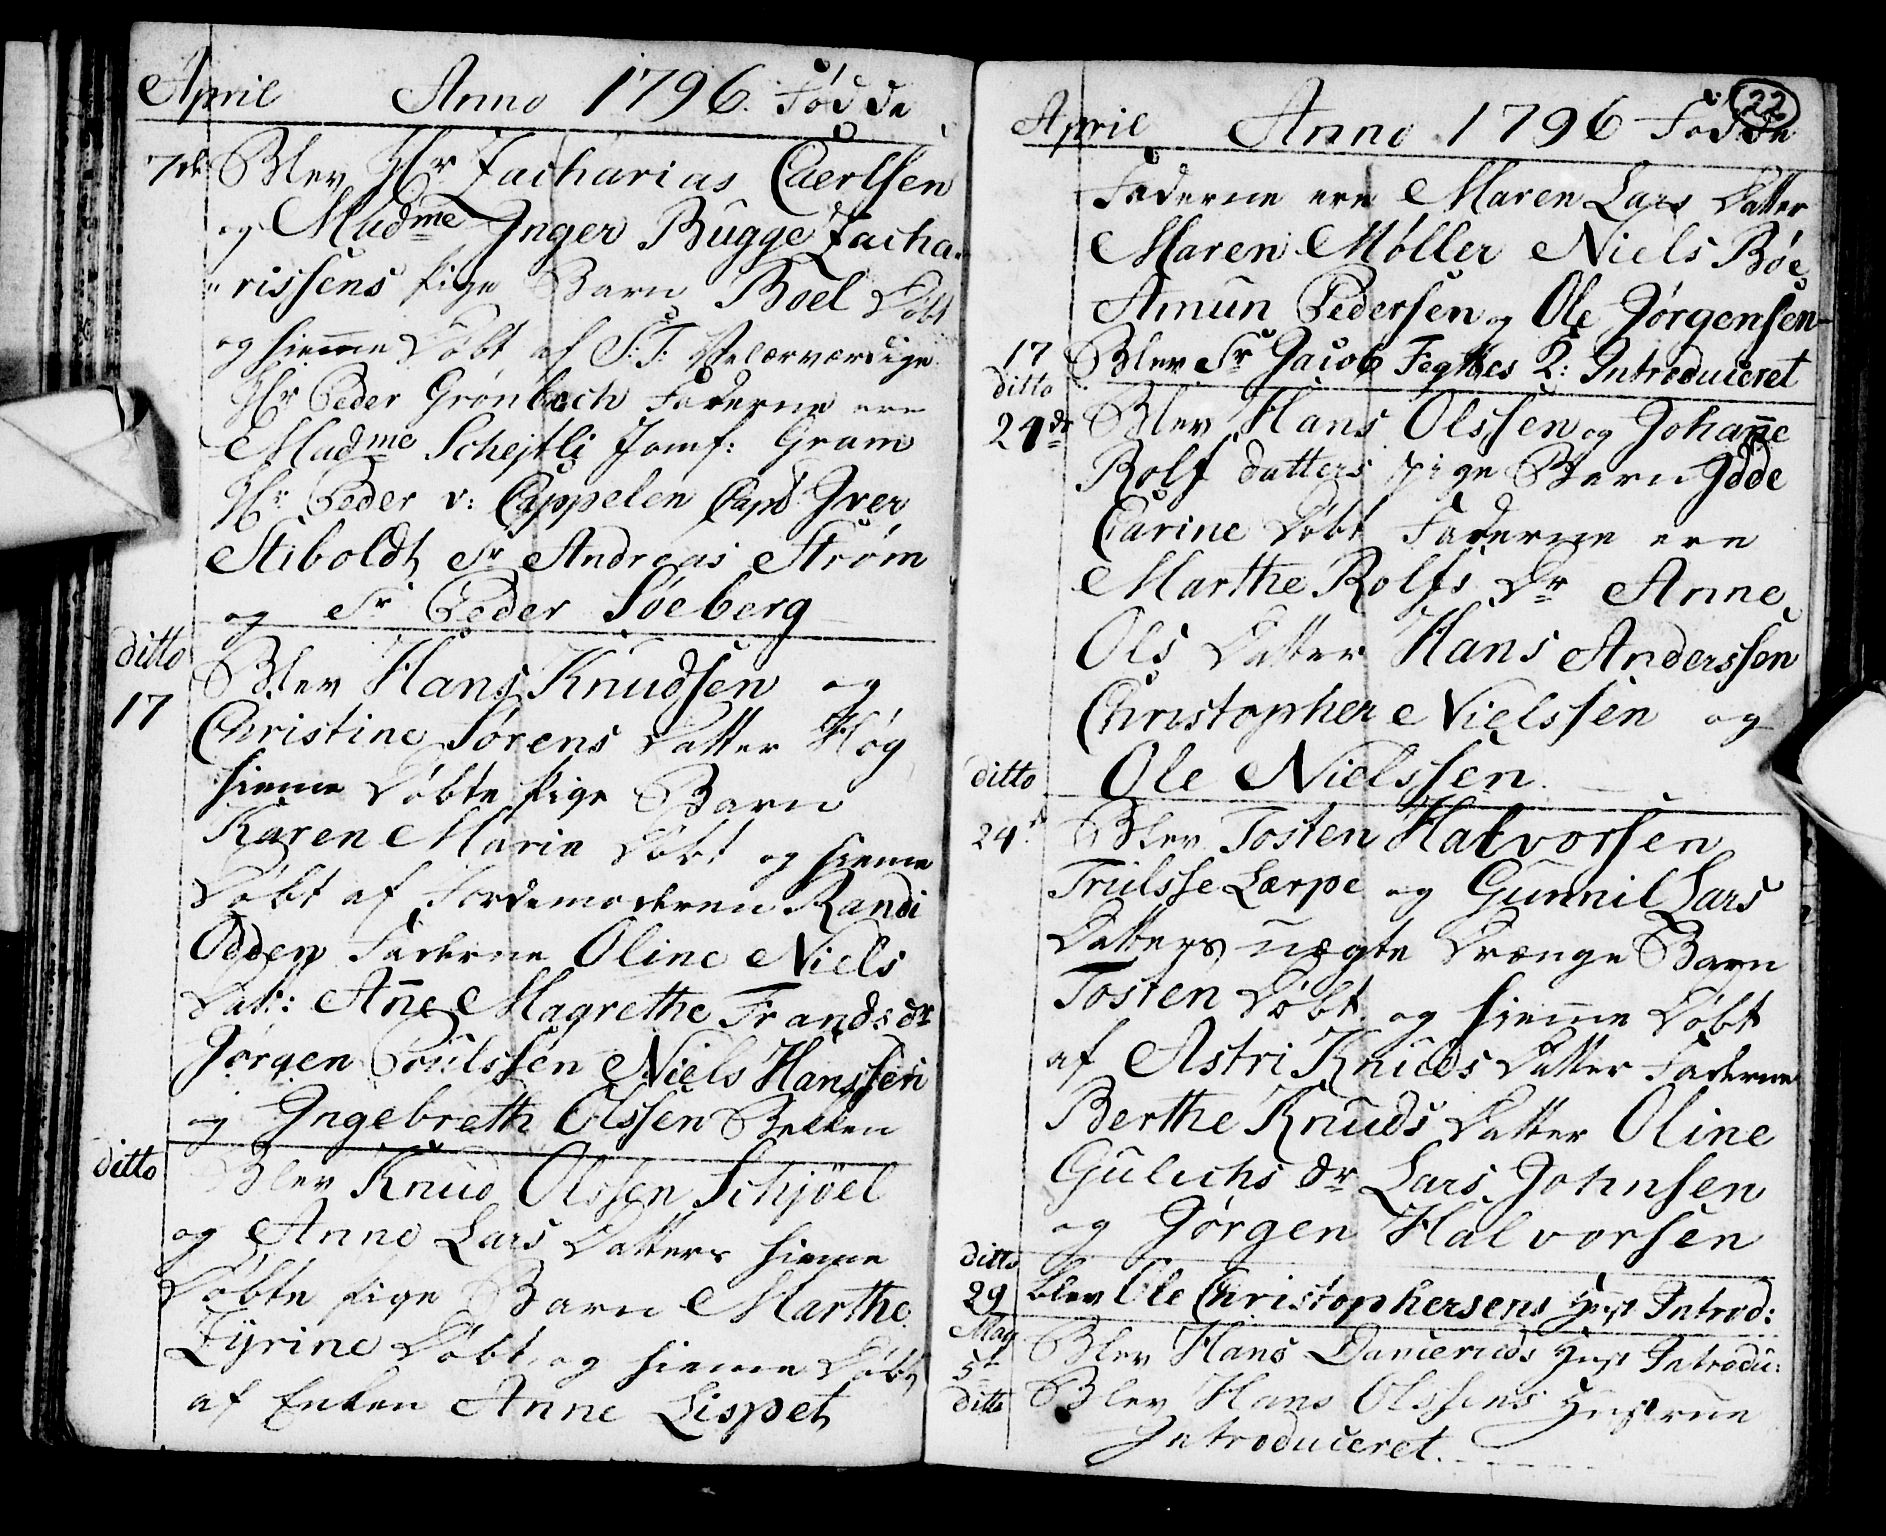 April Anno 1796. Fødde
7de Blev Hr Zacharias Caerlsen
og Madme Inger Bugge Zacha-
rissens Pige Barn Boel Døbt
og hieme Døbt af S: T: Velærværdige
Hr Peder Grønbech Faderne ere
Madme Schejtli Jomf: Gram
Hr Peder v: Cappelen Capt Iver
Stiboldt Sr Andreas Strøm
og Sr Peder Søeberg
ditto
17 Blev Hans Knudsen og
Christine Sørens Datter Høg
hieme Døbte Pige Barn
Karen Maria Døbt og hieme
Døbt af Jordemoderen Randi
Odden Faderne Oline Niels
Dat: Añe Magrethe Frands dr
Jørgen Poulssen Niels Hanssen
og Ingebreth Olssen Bekken
ditto Blev Knud Olssen Schjöel
og Anne Lars Datters hieme
Døbte Pige Barn Marthe
Zyrine Døbt og hieme Døbt
af Enken Anne Lispet
22
April Anno 1796 Fødde
Faderne ere Maren Lars Datter
Maren Møller Niels Bøe
Amun Pedersen og Ole Jørgensen
17 Blev Sr Jacob Fegthes Q: Introduceret
ditto
24de Blev Hans Olssen og Johañe
Rolf datters Pige Barn Idde
Carine Døbt Faderne ere
Marthe Rolfs Dr Anne
Ols Datter Hans Anderssen
Christopher Nielssen og
ditto Ole Nielssen.
24d Blev Tosten Halvorsen
Trulsse Lærpe og Gunnil Lars
Datters uægte Drænge Barn
Tosten Døbt og hieme Døbt
af Astri Knuds Datter Faderne
Berthe Knuds Datter Oline
Gulichs dr Lars Johnsen
og Jørgen Halvorsen
ditto
29 blev Ole Christophersens Hust Introd:
May
5t Blev Hans Dancerteds Hust Introdu:
ditto Blev Hans Olssens Hustrue
Introduceret.